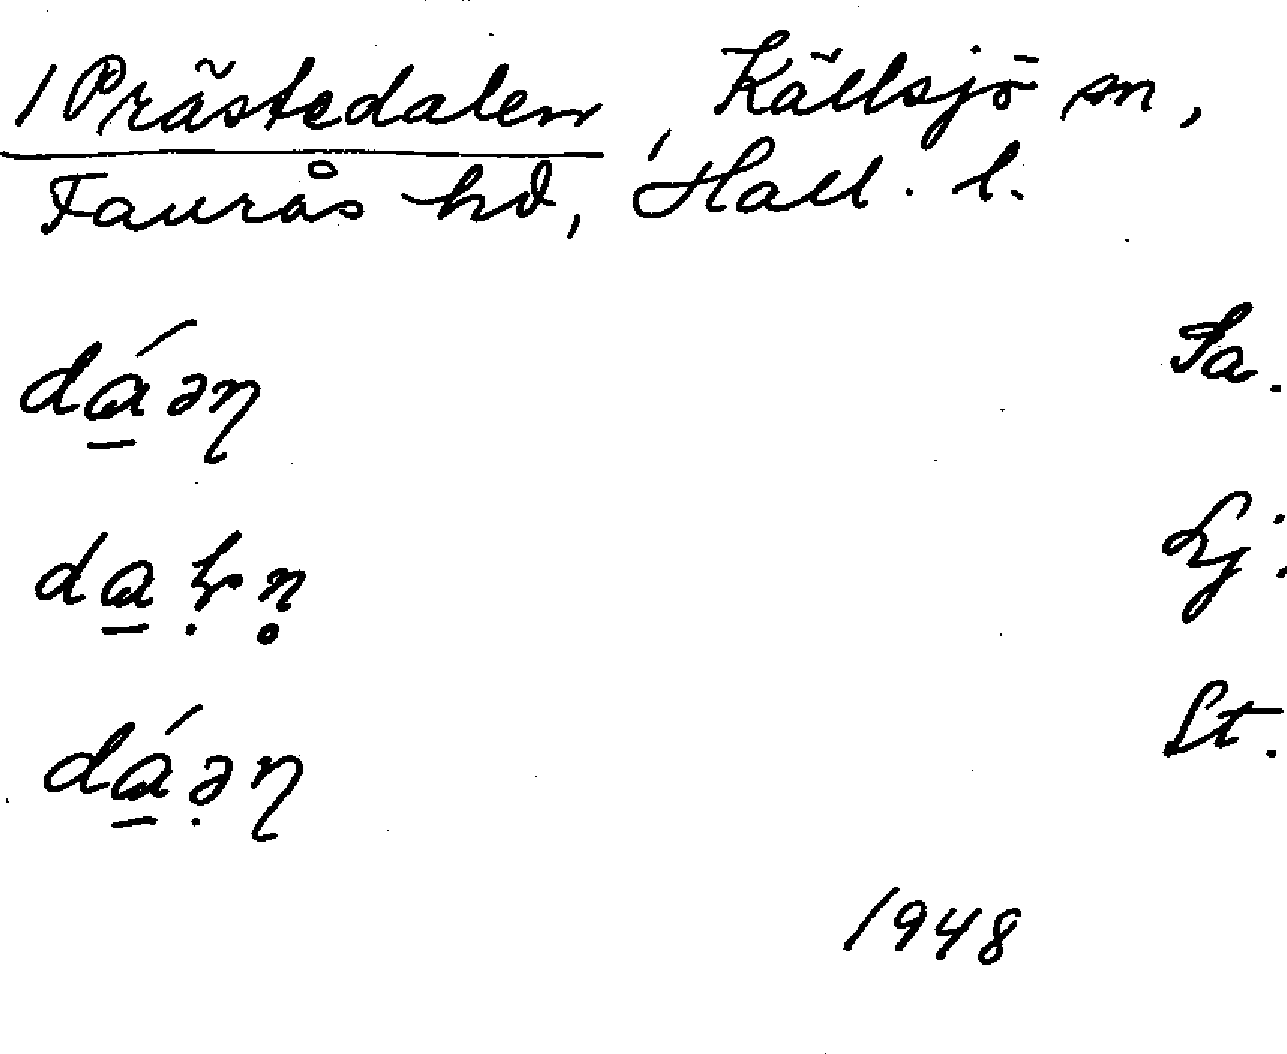 1 Prästedalen, Källsjö sn,
Faurås hd, Hall. l.
dɑ̲́əŋ Sa.
Lj.
dɑ̲́ə̣ŋ St.
1948